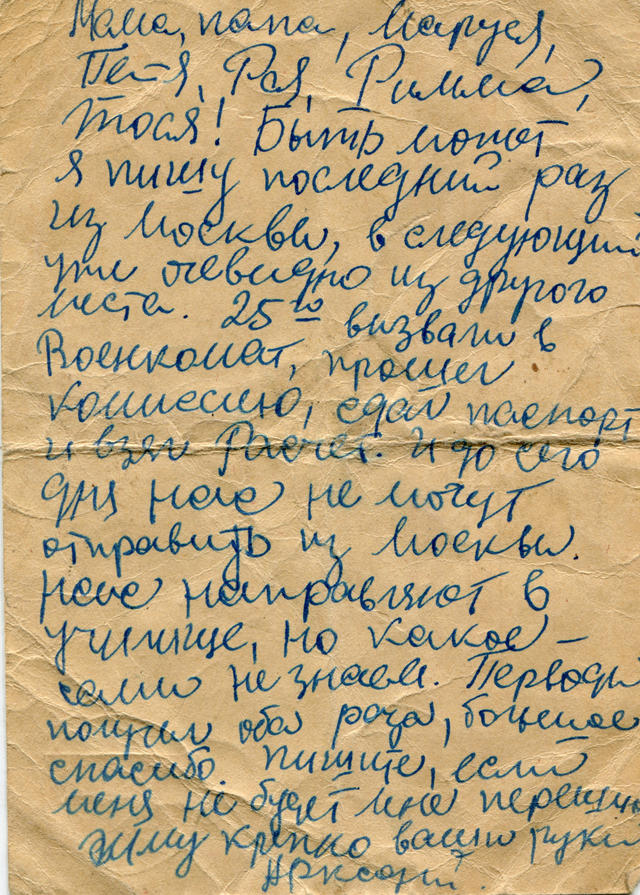 Мама, папа, Маруся,
Петя, Рая, Римма,
Тося! Быть может
я пишу последний раз
из Москвы, в следующий
уже очевидно из другого
места. 25го вызвали в
Военкомат, прошел
комиссию, сдал паспорт
и взял Расчет. И до сего
дня нас не могут
отправить из Москвы.
Нас направляют в
училище, но какое –
сами не знаем. Переводы
получил оба раза, большое
спасибо. Пишите, если
меня не будет мне перешлют
Жму крепко ваши руки